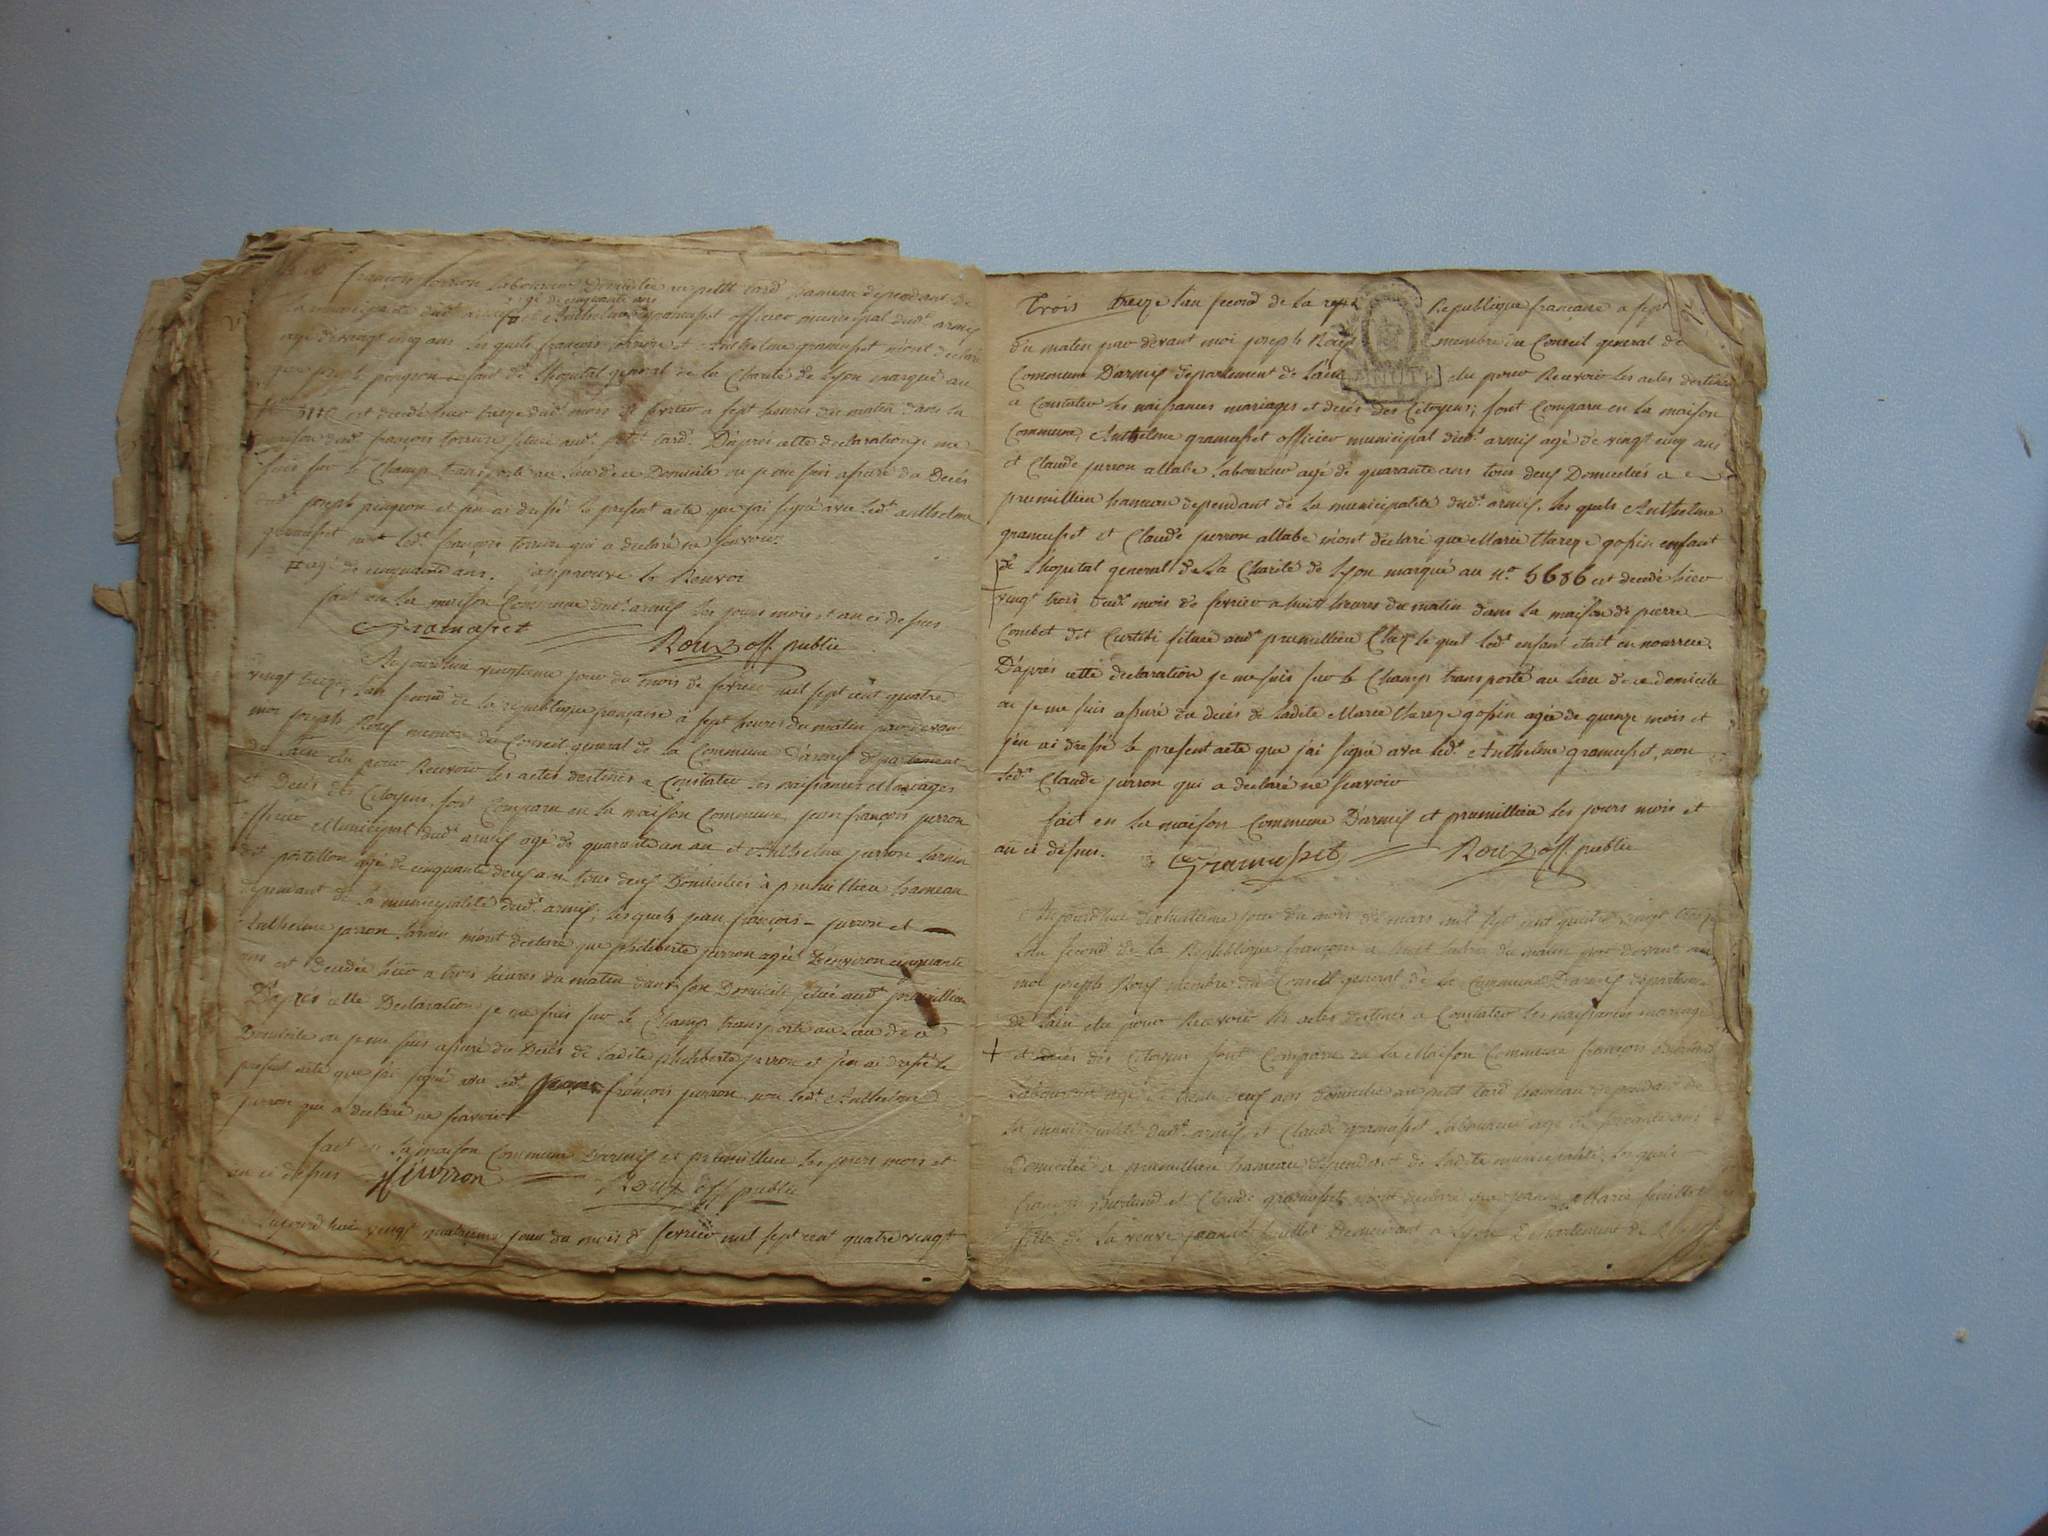 françois torrion laboureur domicilié au petit tard hameau dépendant de
agé de cinquante ans
la municipalité dud.t armis et Anthelme gramusset officier municipal dud.t armis
agé de vingt cinq ans les quels françois torrion et Anthelme gramusset m'ont déclaré
que joseph pingeon enfant de l'hopital general de la Charité de Lyon marqué au
est decedé hier treize dud.t mois de fevrier a sept heures du matin dans la
maison dud. françois torrion située aud. petit tard. D'après cette declaration je me
suis sur le Champ transporté au lieu de ce Domicile ou je me suis assuré du Decés
dud.t joseph pingeon et j'en ai dressé le present acte que j'ai signé avec led.t anthelme
gramusset non led.t françois torrion qui a declaré ne scavoir.
agé de cinquante ans. j'approuve le Renvoi
fait en la maison Commune dud.t armis les jours mois et an ci dessus
Gramusset Roux off. public
Aujourdhui vingtieme jour du mois de fevrier mil sept cent quatre
vingt treize, l'an second de la republique françaises à sept heures du matin par devant
moi joseph Roux membre du Conseil general de la Commune d'armis departement
de l'ain elu pour Recevoir les actes destinés a Constater les naissances et Mariages
et Decés des Citoyens, sont Comparu en la maison Commune, jean françois jurron
officier Municipal dud.t armis agé de quarante un an et Anthelme jurron larnin
dit postillon agé de cinquante deux ans tous deux Domiciliés à prumillieu hameau
dependant de la municipalité dud.t armis; les quels jean françois jurron et
Anthelme jurron larnin m'ont declaré que philiberte jurron agée d'environ cinquante
ans est Decedée hier a trois heures du matin dans son Domicile située aud.t prumillieu
D'après cette Declaration je me suis sur le Champ transporté au lieu de ce
Domicile ou je me suis assuré du Decés de ladite philiberte jurron et j'en ai dressé le
present acte que j'ai signé avec led.t jean françois jurron non led.t Anthelme
jurron que a declaré ne scavoir
fait en la maison Commune d'armis et prumillieu les jours mois et
an ci dessus jf jurron Roux off public
Aujourd'hui vingt quatrieme jour du mois de fevrier mil sept cent quatre vingt
Trois treize l'an second de la repu Republique francaise a sept
du matin par devant moi joseph Roux membre du Conseil general de
Commune Darmis departement de l'ain elu pour Recevoir les actes destinés
a Constater les naissances mariages et decés des Citoyens; sont Comparu en la maison
Commune, Anthelme gramusset officier municipal dud.t armis agé de vingt cinq ans
et Claude jurron allabe laboureur agé de quarante ans tous deux Domiciliés a
prumillieu hameau dependant de la municipalité dud.t armis. les quels Anthelme
gramusset et Claude jurron allabe m'ont declaré que Marie gossin enfant
de l'hopital general de la Charité de Lyon marqué au n.o 5686 est decedé hier
vingt trois dud.t mois de fevrier a huit heures du matin dans la maison de pierre
Combet dit Curtibi située aud.t prumillieu Chez le quel led.t enfant etait en nourrice.
D'aprés cette declaration je me suis sur le Champ transporté au lieu de ce domicile
ou je me suis assuré du decés de ladite Marie gossin agée de quinze mois et
j'en ai dressé le present acte que j'ai signé avec led.t Anthelme gramusset, non
led.t Claude jurron qui a declaré ne scavoir
fait en la maison Commune D'armis et prumillieu les jours mois et
an ci dessus. Gramusset Roux off public
Aujourdhui dixhuitieme jour du mois de mars mil sept cent quatre vingt treize
l'an second de la Republique françoise a huit heures du matin par devant
moi joseph Roux membre du Conseil general de la Commune D'armis departement
de l'ain elu pour Recevoir les actes destinés a Constater les naissances mariages
et decés des Citoyens sont Comparu en la Maison Commune françois
laboureur agé de trente deux ans domicilié au petit tard hameau dependant de
la municipalité dud.t armis et Claude gramusset laboureur agé de soixante ans
Domicilié a prumillieu hameau dependent de ladite municipalité, les quels
françois et Claude gramusset m'ont declaré que jeanne Marie
fille de la veuve Demeurant a Lyon Departement de Rhone